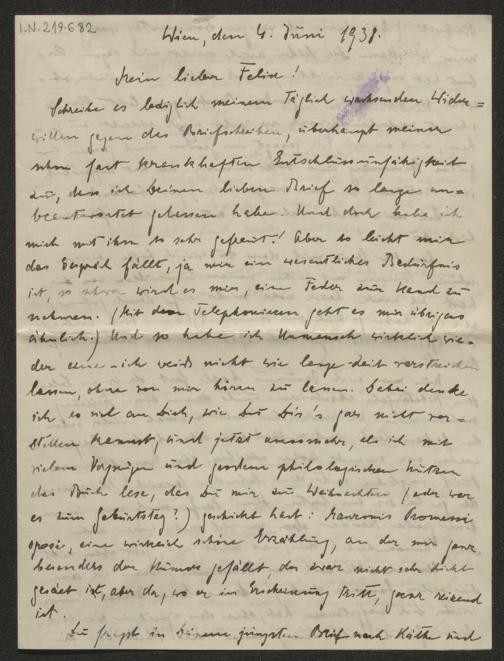 I.N. 219.682
Wien, den 4. Juni 1938.
Mein lieber Felix!
Schreibe es lediglich meinem täglich wachsenden Wider=
willen gegen das Briefschreiben, überhaupt meiner
schon fast krankhaften Entschlussunfähigkeit
zu, dass ich Deinen lieben Brief so lange un=
beantwortet gelassen habe. Und doch habe ich
mich mit ihm so sehr gefreut! Aber so leicht mir
das Gespräch fällt, ja mir ein wesentliches Bedürfnis
ist, so schwer wird es mir, eine Feder zur Hand zu
nehmen. (Mit dem Telephonieren geht es mir übrigens
ähnlich.) Und so habe ich Unmensch wirklich wie=
der eine ich weiß nicht wie lange Zeit verstreichen
lassen, ohne von mir hören zu lassen. Dabei denke
ich so viel an Dich, wie Du Dir's gar nicht vor=
stellen kannst, und jetzt umsomehr, als ich mit
vielem Vergnügen und großem philologischen Nutzen
das Buch lese, das Du mir zu Weihnachten (oder war
es zum Geburtstag?) geschickt hast: Manzonis Promessi
sposi, eine wirklich schöne Erzählung, an der mir ganz
besonders der Humor gefällt, der zwar nicht sehr dicht
gesäet ist, aber da, wo er in Erscheinung tritt, ganz reizend
ist.
Du fragst in Deinem jüngsten Brief nach Käthe und